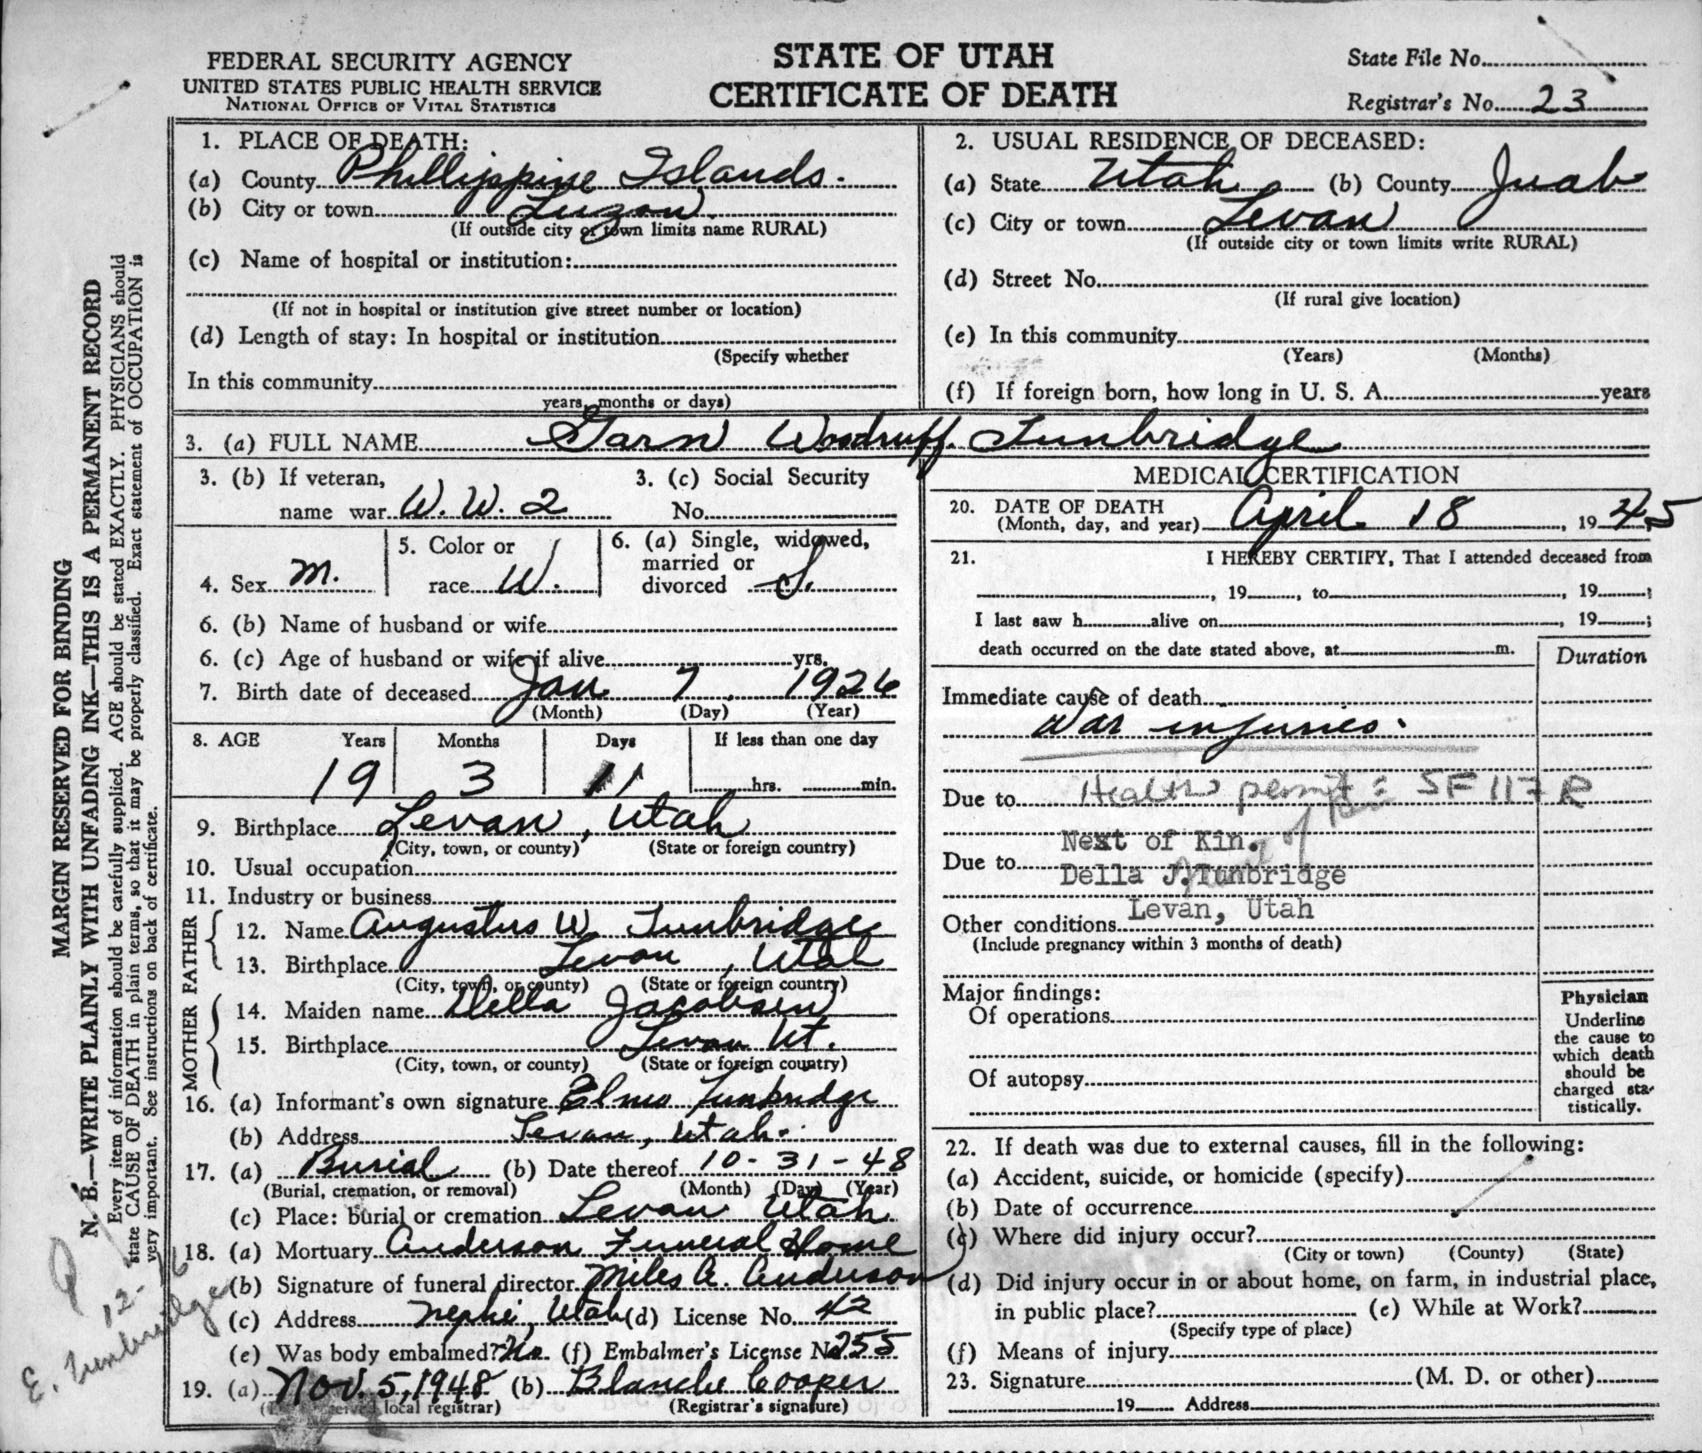 FEDERAL SECURITY AGENCY
UNITED STATES PUBLIC HEALTH SERVICE
NATIONAL OFFICE OF VITAL STATISTICS
STATE OF UTAH
CERTIFICATE OF DEATH
State File No.
Registrar's No. 23
MARGIN RESERVED FOR BINDING
N. B.—WRITE PLAINLY WITH UNFADING INK—THIS IS A PERMANENT RECORD
Every item of information should be carefully supplied. AGE should be stated EXACTLY. PHYSICIANS should
state CAUSE OF DEATH in plain terms, so that it may be properly classified. Exact statement of OCCUPATION is
very important. See instructions on back of certificate.
1. PLACE OF DEATH:
(a) County Phillippine Islands.
(b) City or town Luzon.
(If outside city or town limits name RURAL)
(c) Name of hospital or institution:
(If not in hospital or institution give street number or location)
(d) Length of stay: In hospital or institution
(Specify whether
In this community
years, months or days)
2. USUAL RESIDENCE OF DECEASED:
(a) State Utah (b) County Juab
(c) City or town Levan
(If outside city or town limits write RURAL)
(d) Street No.
(If rural give location)
(e) In this community
(Years) (Months)
(f) If foreign born, how long in U. S. A. years
3. (a) FULL NAME Garn Woodruff Tunbridge
3. (b) If veteran, 3. (c) Social Security
name war W. W. 2 No.
4. Sex M. 5. Color or race W. 6. (a) Single, widowed, married or divorced S.
6. (b) Name of husband or wife
6. (c) Age of husband or wife if alive yrs.
7. Birth date of deceased Jan 7, 1926
(Month) (Day) (Year)
8. AGE Years Months Days If less than one day
19 3 11 hrs. min.
9. Birthplace Levan, Utah
(City, town, or county) (State or foreign country)
10. Usual occupation
11. Industry or business
FATHER
12. Name Augustus W. Tunbridge
13. Birthplace Levan, Utah
(City, town, or county) (State or foreign country)
MOTHER
14. Maiden name Della Jacobsen
15. Birthplace Levan Ut.
(City, town, or county) (State or foreign country)
16. (a) Informant's own signature Elmo Tunbridge
(b) Address Levan, Utah.
17. (a) Burial (b) Date thereof 10-31-48
(Burial, cremation, or removal) (Month) (Day) (Year)
(c) Place: burial or cremation Levan Utah
18. (a) Mortuary Anderson Funeral Home
(b) Signature of funeral director Miles A. Anderson
(c) Address Nephi, Utah (d) License No. 42
(e) Was body embalmed? No. (f) Embalmer's License No 255
19. (a) Nov. 5, 1948 (b) Blanche Cooper
received local registrar) (Registrar's signature)
MEDICAL CERTIFICATION
20. DATE OF DEATH
(Month, day, and year) April 18, 1945
21. I HEREBY CERTIFY, That I attended deceased from
, 19 , to , 19 ;
I last saw h alive on , 19 ;
death occurred on the date stated above, at m.
Duration
Immediate cause of death
War injuries.
Due to Health permit : SF 117 R
Next of Kin.
Due to
Della J. Tunbridge
Levan, Utah
Other conditions
(Include pregnancy within 3 months of death)
Major findings:
Of operations
Of autopsy
Physician
Underline
the cause to
which death
should be
charged sta-
tistically.
22. If death was due to external causes, fill in the following:
(a) Accident, suicide, or homicide (specify)
(b) Date of occurrence
(c) Where did injury occur?
(City or town) (County) (State)
(d) Did injury occur in or about home, on farm, in industrial place,
in public place? (e) While at Work?
(Specify type of place)
(f) Means of injury
23. Signature (M. D. or other)
19 Address
E. Tunbridge